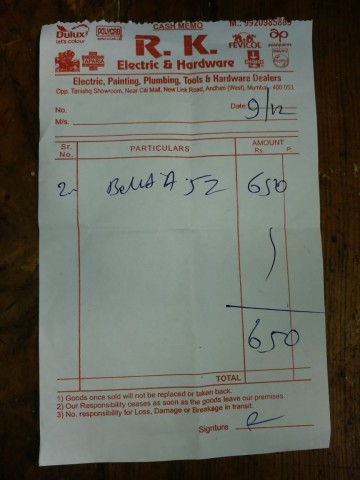 CASH MEMO
Dulux
let's colour
POLYCAB
TAPARIA
R. K.
FEVICOL
asianpaints
PHILIPS
Electric & Hardware
Electric, Painting, Plumbing, Tools & Hardware Dealers
Opp. Tanishq Showroom, Near Citi Mall, New Link Road, Andheri (West), Mumbai - 400 053.
No.
Date: 9/12
M/s.
Sr. No. PARTICULARS AMOUNT Rs. P.
2 650
650
TOTAL
1) Goods once sold will not be replaced or taken back.
2) Our Responsibility ceases as soon as the goods leave our premises.
3) No. responsibility for Loss, Damage or Breakage in transit.
Signture